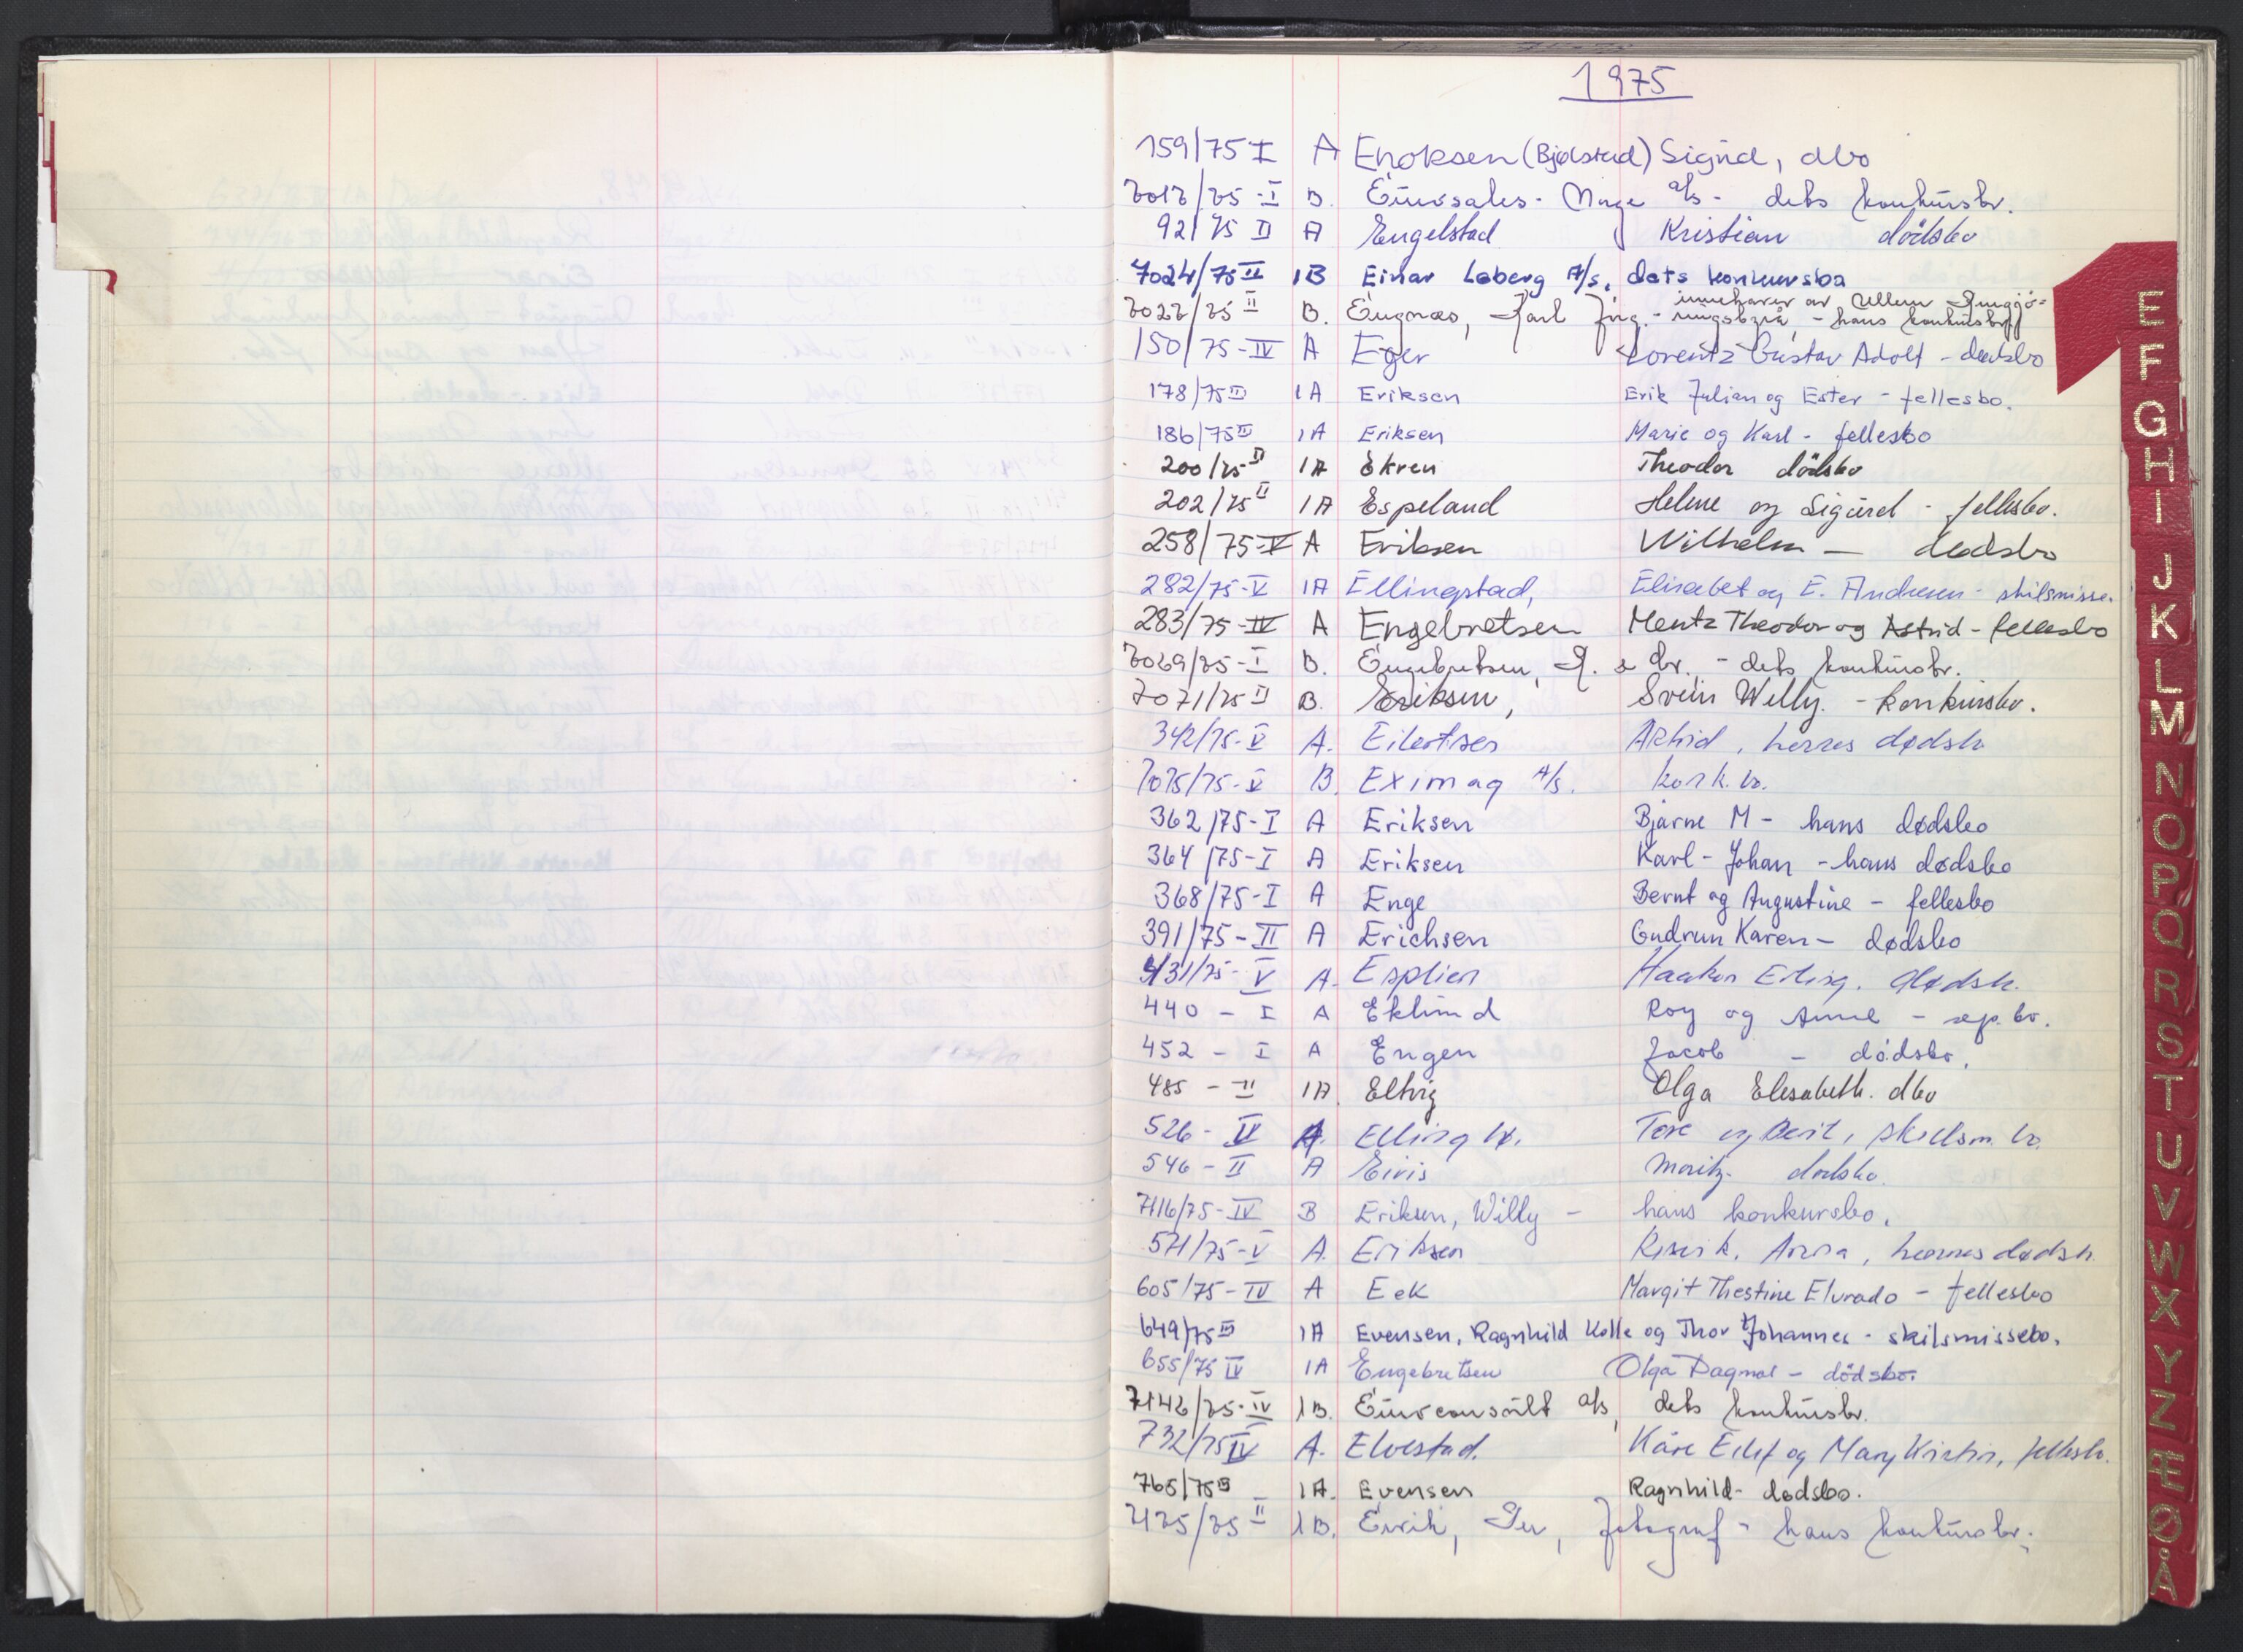 1975
159/75 I A Enoksen (Bjølstad) Sigrid, dbo
7017/75-I B. Eurosales-Norge a/s - dets konkursbo.
92/75 II A Engelstad Kristian dödsbo
7024/75 II 1B Einar Løberg A/s, dets konkursbo
innehaver av Ullern Rengjø-
7027/75 II B. Engnæs, Karl Jørg. - ringsbyrå, - hans konkursbo
150/75-IV A Eger Lorentz Gustav Adolf - dødsbo
178/75 III 1A Eriksen Erik Julian og Ester - fellesbo.
186/75 II 1A Eriksen Marie og Karl - fellesbo
200/75 II 1A Ekren Theodor dödsbo
202/75 II 1A Espeland Helene og Sigurd - fellesbo.
258/75-V A Eriksen Wilhelm - dødsbo
282/75-V 1A Ellingstad, Elisabet og E. Andresen - skilsmisse.
283/75-IV A Engebretsen Mentz Theodor og Astrid - fellesbo
7069/75-I B. Engebretsen, R. & Br. - dets konkursbo.
7071/75 II B. Eriksen, Svein Willy. - konkursbo.
342/75-V A. Eilertsen Astrid, hennes dødsb
7075/75-V B. Eximag A/s. konk.bo.
362/75-I A Eriksen Bjarne M - hans dødsbo
364/75-I A Eriksen Karl-Johan - hans dødsbo
368/75-I A Enge Bernt og Augustine - fellesbo
391/75-II A Erichsen Gudrun Karen - dødsbo
431/75-V A. Esplien Haakon Erling. dødsb.
440 - I A Eklund Roy og Anne - sep.bo.
452 - I A Engen Jacob - dödsbo.
485 - II 1A. Eltvig Olga Elesabeth. dbo
526 - IV A. Ellingh. Tore og Berit, skilsm.bo.
546 - II A Eivis Moritz. dødsbo.
7116/75-IV B Eriksen, Willy - hans konkursbo.
571/75-V A. Eriksen k. Anna, hennes dødsb.
605/75-IV A Eek Margit Thestine Elvrado - fellesbo
649/75 III 1A Evensen, Ragnhild Kolle og Thor Johannes - skilsmissebo.
655/75 IV 1A Engebretsen Olga Dagmar - dödsbo.
7142/75-IV 1B. Euroconsult a/s, dets konkursbo.
732/75 IV A. Elvestad. Kåre Eilif og Mary Kristin, fellesb.
765/75 III 1A. Evensen Ragnhild - dødsbo.
7175/75 II 1B. Eirik, Per, fotograf - hans konkursbo.
1
E
F
G
H
I
J
K
L
M
N
O
P
Q
R
S
T
U
V
W
X
Y
Z
Æ
Ø
Å